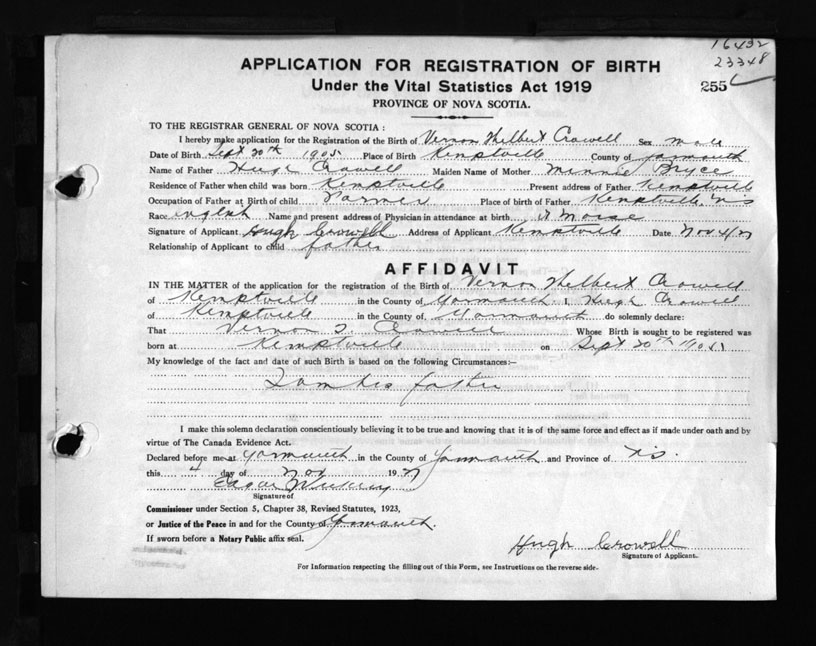 16432
23348
APPLICATION FOR REGISTRATION OF BIRTH
Under the Vital Statistics Act 1919
255
PROVINCE OF NOVA SCOTIA.
TO THE REGISTRAR GENERAL OF NOVA SCOTIA :
I hereby make application for the Registration of the Birth of Vernon Thelbert Crowell Sex male
Date of Birth Sept 20th 1905 Place of Birth Kemptville County of Yarmouth
Name of Father Hugh Crowell Maiden Name of Mother Minnie Bryce
Residence of Father when child was born Kemptville Present address of Father Kemptville
Occupation of Father at Birth of child Farmer Place of birth of Father Kemptville NS
Race English Name and present address of Physician in attendance at birth
Signature of Applicant Hugh Crowell Address of Applicant Kemptville Date Nov 4/27
Relationship of Applicant to child father
AFFIDAVIT
IN THE MATTER of the application for the registration of the Birth of Vernon Thelbert Crowell
of Kemptville in the County of Yarmouth I, Hugh Crowell
of Kemptville in the County of Yarmouth do solemnly declare:
That Vernon T. Crowell Whose Birth is sought to be registered was
born at Kemptville on Sept 20th 1905
My knowledge of the fact and date of such Birth is based on the following Circumstances:–
I am his father
I make this solemn declaration conscientiously believing it to be true and knowing that it is of the same force and effect as if made under oath and by
virtue of The Canada Evidence Act.
Declared before me at Yarmouth in the County of Yarmouth and Province of N.S.
this 4 day of Nov 1927
Edgar
Signature of
Commissioner under Section 5, Chapter 38, Revised Statutes, 1923,
or Justice of the Peace in and for the County of Yarmouth.
If sworn before a Notary Public affix seal.
Hugh Crowell
Signature of Applicant.
For Information respecting the filling out of this Form, see Instructions on the reverse side.